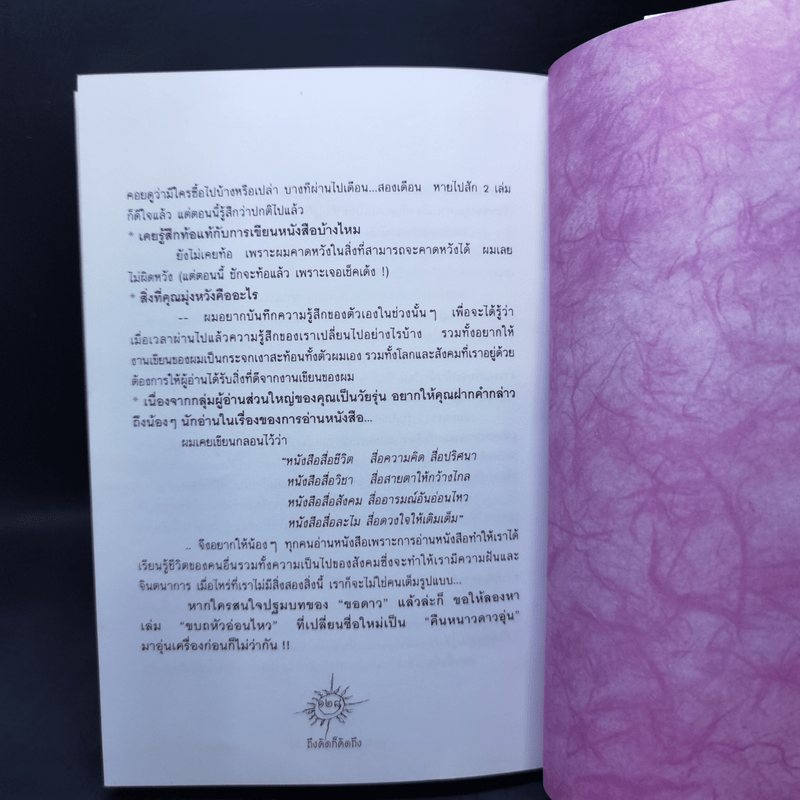 คอยดูว่ามีใครซื้อไปบ้างหรือเปล่า บางทีผ่านไปเดือน...สองเดือน หายไปสัก 2 เล่ม
ก็ดีใจแล้ว แต่ตอนนี้รู้สึกว่าปกติไปแล้ว
* เคยรู้สึกท้อแท้กับการเขียนหนังสือบ้างไหม
ยังไม่เคยท้อ เพราะผมคาดหวังในสิ่งที่สามารถจะคาดหวังได้ ผมเลย
ไม่ผิดหวัง (แต่ตอนนี้ ชักจะท้อแล้ว เพราะเจอเช็คเด้ง !)
* สิ่งที่คุณมุ่งหวังคืออะไร
-- ผมอยากบันทึกความรู้สึกของตัวเองในช่วงนั้นๆ เพื่อจะได้รู้ว่า
เมื่อเวลาผ่านไปแล้วความรู้สึกของเราเปลี่ยนไปอย่างไรบ้าง รวมทั้งอยากให้
งานเขียนของผมเป็นกระจกเงาสะท้อนทั้งตัวผมเอง รวมทั้งโลกและสังคมที่เราอยู่ด้วย
ต้องการให้ผู้อ่านได้รับสิ่งที่ดีจากงานเขียนของผม
* เนื่องจากกลุ่มผู้อ่านส่วนใหญ่ของคุณเป็นวัยรุ่น อยากให้คุณฝากคำกล่าว
ถึงน้องๆ นักอ่านในเรื่องของการอ่านหนังสือ...
ผมเคยเขียนกลอนไว้ว่า
"หนังสือสื่อชีวิต สื่อความคิด สื่อปริศนา
หนังสือสื่อวิชา สื่อสายตาให้กว้างไกล
หนังสือสื่อสังคม สื่ออารมณ์อันอ่อนไหว
หนังสือสื่อละไม สื่อดวงใจให้เติมเต็ม"
.. จึงอยากให้น้องๆ ทุกคนอ่านหนังสือเพราะการอ่านหนังสือทำให้เราได้
เรียนรู้ชีวิตของคนอื่นรวมทั้งความเป็นไปของสังคมซึ่งจะทำให้เรามีความฝันและ
จินตนาการ เมื่อไหร่ที่เราไม่มีสิ่งสองสิ่งนี้ เราก็จะไม่ใช่คนเต็มรูปแบบ...
หากใครสนใจปฐมบทของ "ขอดาว" แล้วล่ะก็ ขอให้ลองหา
เล่ม "ขบถหัวอ่อนไหว" ที่เปลี่ยนชื่อใหม่เป็น "คืนหนาวดาวอุ่น"
มาอุ่นเครื่องก่อนก็ไม่ว่ากัน !!
๑๒๘
ถึงคิดก็คิดถึง